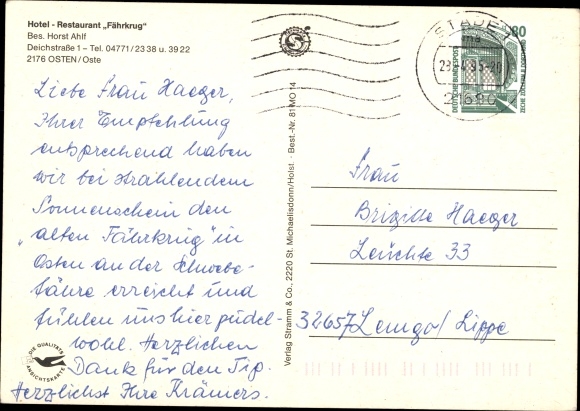 Hotel - Restaurant „Fährkrug"
Bes. Horst Ahlf
Deichstraße 1 – Tel. 04771/23 38 u. 39 22
2176 OSTEN/Oste
Liebe Frau Haeger,
Ihrer Empfehlung
entsprechend haben
wir bei strahlendem
Sonnenschein den
„alten Fährkrug" in
Osten an der Schwebe-
fähre erreicht und
fühlen uns hier pudel-
wohl. Herzlichen
Dank für den Tip.
Herzlichst Ihre Krämers.
DIE QUALITÄTS
ANSICHTSKARTE
Verlag Stramm & Co., 2220 St. Michaelisdonn/Holst. · Best.-Nr. 81 MO 14
STADE
80
DEUTSCHE BUNDESPOST
ZECHE ZOLLERN II DORTMUND
Frau
Brigitte Haeger
Leuchte 33
32657 Lemgo/Lippe